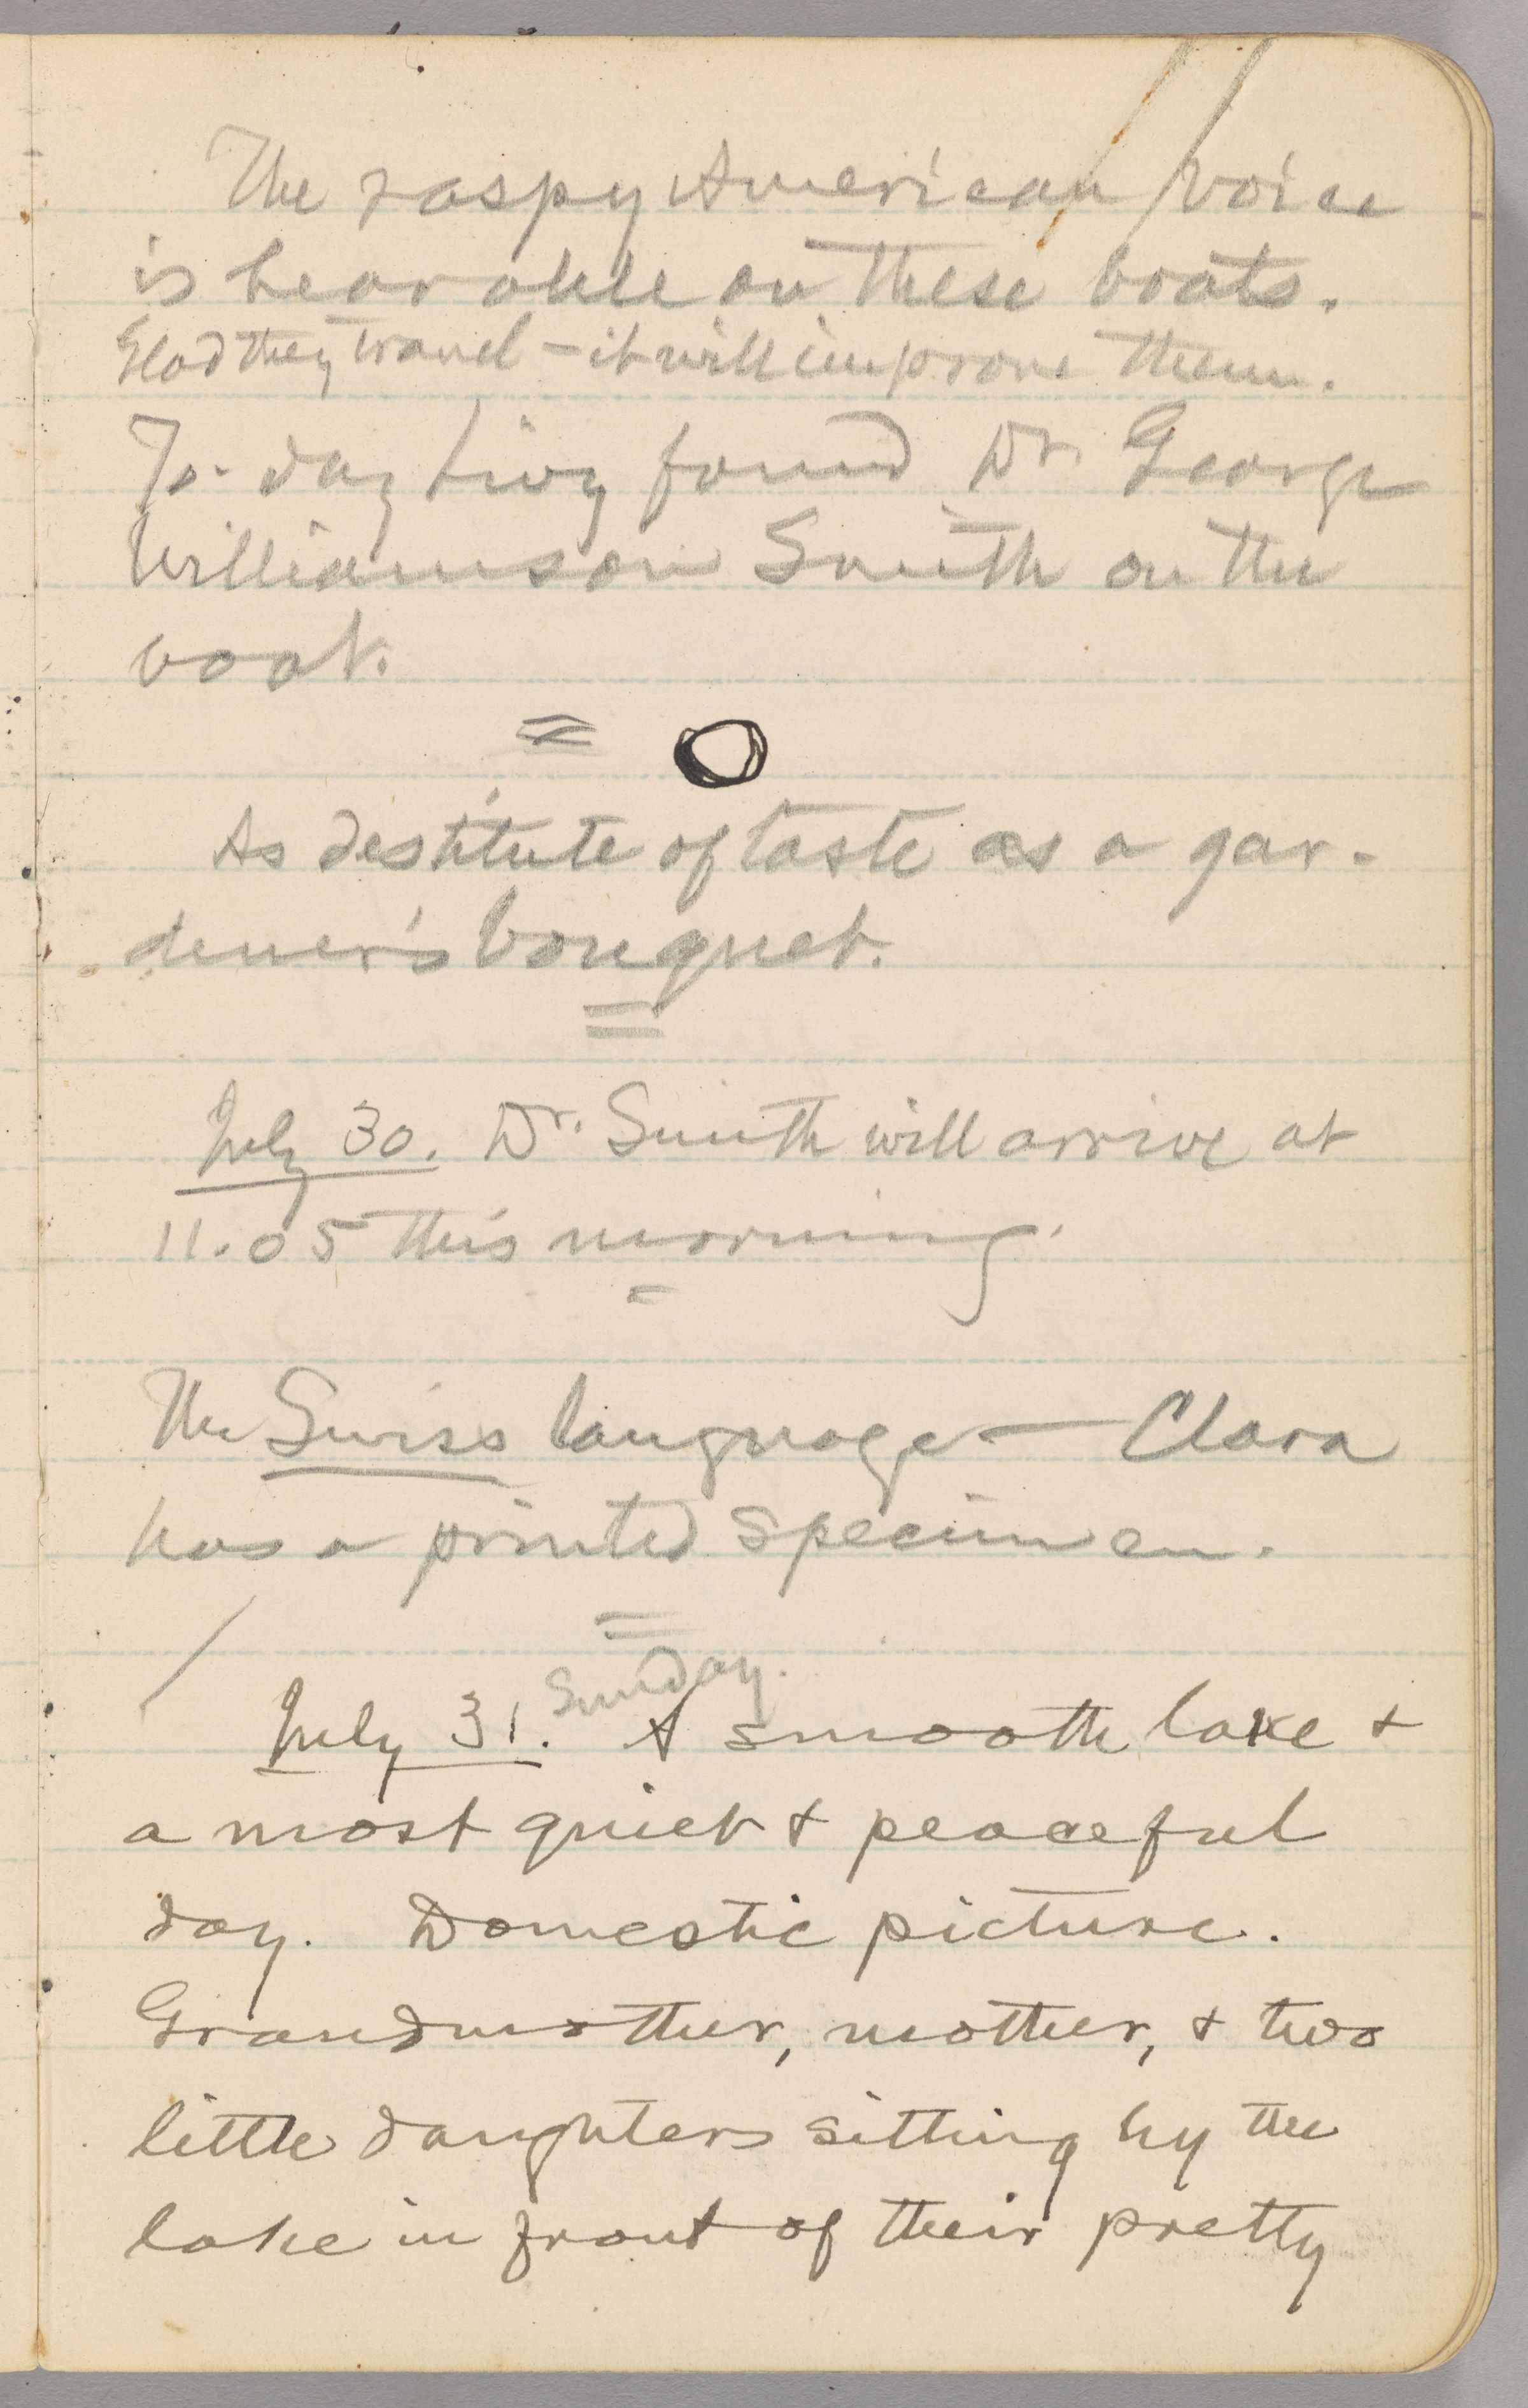 The raspy American voice
is hearable on these boats.
Glad they travel – it will improve them.
To-day Livy found Dr. George
Williamson Smith on the
boat.
As destitute of taste as a gar-
dener's bouquet.
July 30. Dr. Smith will arrive at
11.05 this morning.
The Swiss language — Clara
has a printed specimen.
Sunday.
July 31. A smooth lake &
a most quiet & peaceful
day. Domestic picture.
Grandmother, mother, & two
little daughters sitting by the
lake in front of their pretty